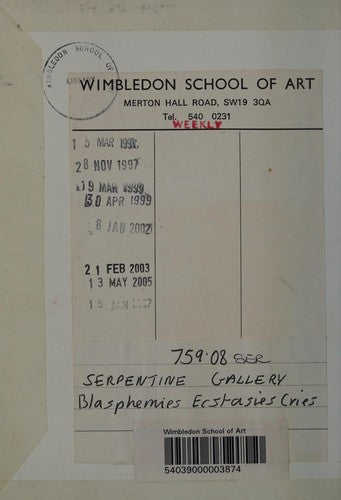 WIMBLEDON SCHOOL OF
LIBRARY
WIMBLEDON SCHOOL OF ART
MERTON HALL ROAD, SW19 3QA
Tel. 540 0231
WEEKLY
MAR
28 NOV 1997
19 MAR 1999
30 APR 1999
8 JAN 2002
21 FEB 2003
13 MAY 2005
JAN
759.08 SER
SERPENTINE GALLERY
Blasphemies Ecstasies Cries
Wimbledon School of Art
54039000003874